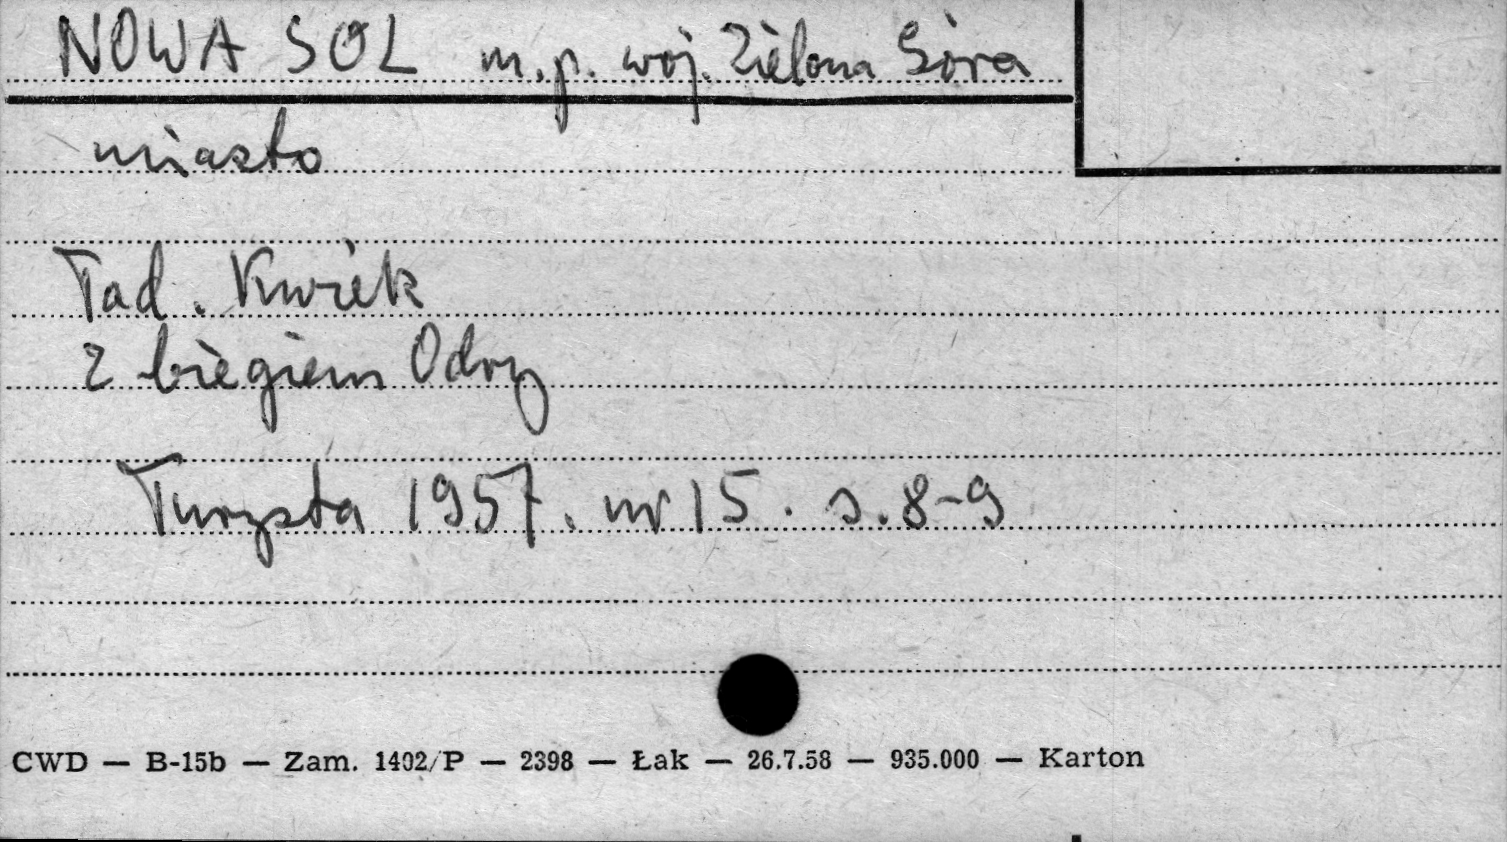 NOWA SÓL m.p. woj. Zielona Góra
miasto
Tad. Kwiek
Z biegiem Odry
Turysta 1957. nr 15. s. 8-9
CWD — B-15b — Zam. 1402/P — 2398 — Łak — 26.7.58 — 935.000 — Karton